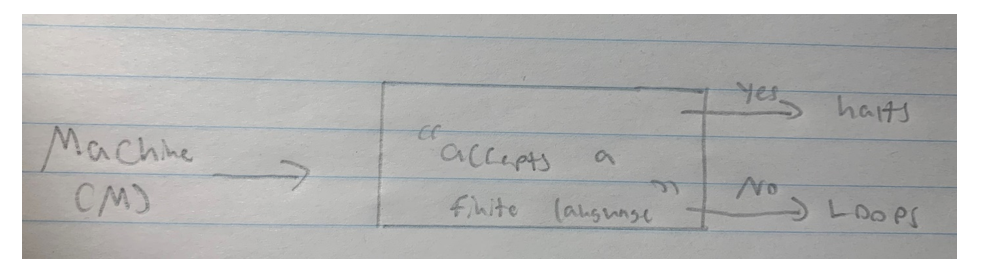 Machine
(M)
"accepts a
finite language"
Yes
halts
No
Loops